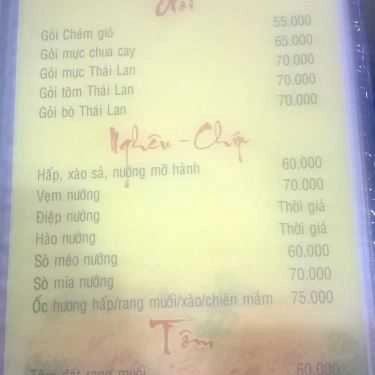 Gỏi
Gỏi Chém gió 55.000
Gỏi mực chua cay 65.000
Gỏi mực Thái Lan 70.000
Gỏi tôm Thái Lan 70.000
Gỏi bò Thái Lan 70.000
Nghêu - Chíp
Hấp, xào sả, nướng mỡ hành 60.000
Vẹm nướng 70.000
Điệp nướng Thời giá
Hào nướng Thời giá
Sò méo nướng 60.000
Sò mía nướng 70.000
Ốc hương hấp/rang muối/xào/chiên mắm 75.000
Tôm
Tôm đất rang muối 60.000